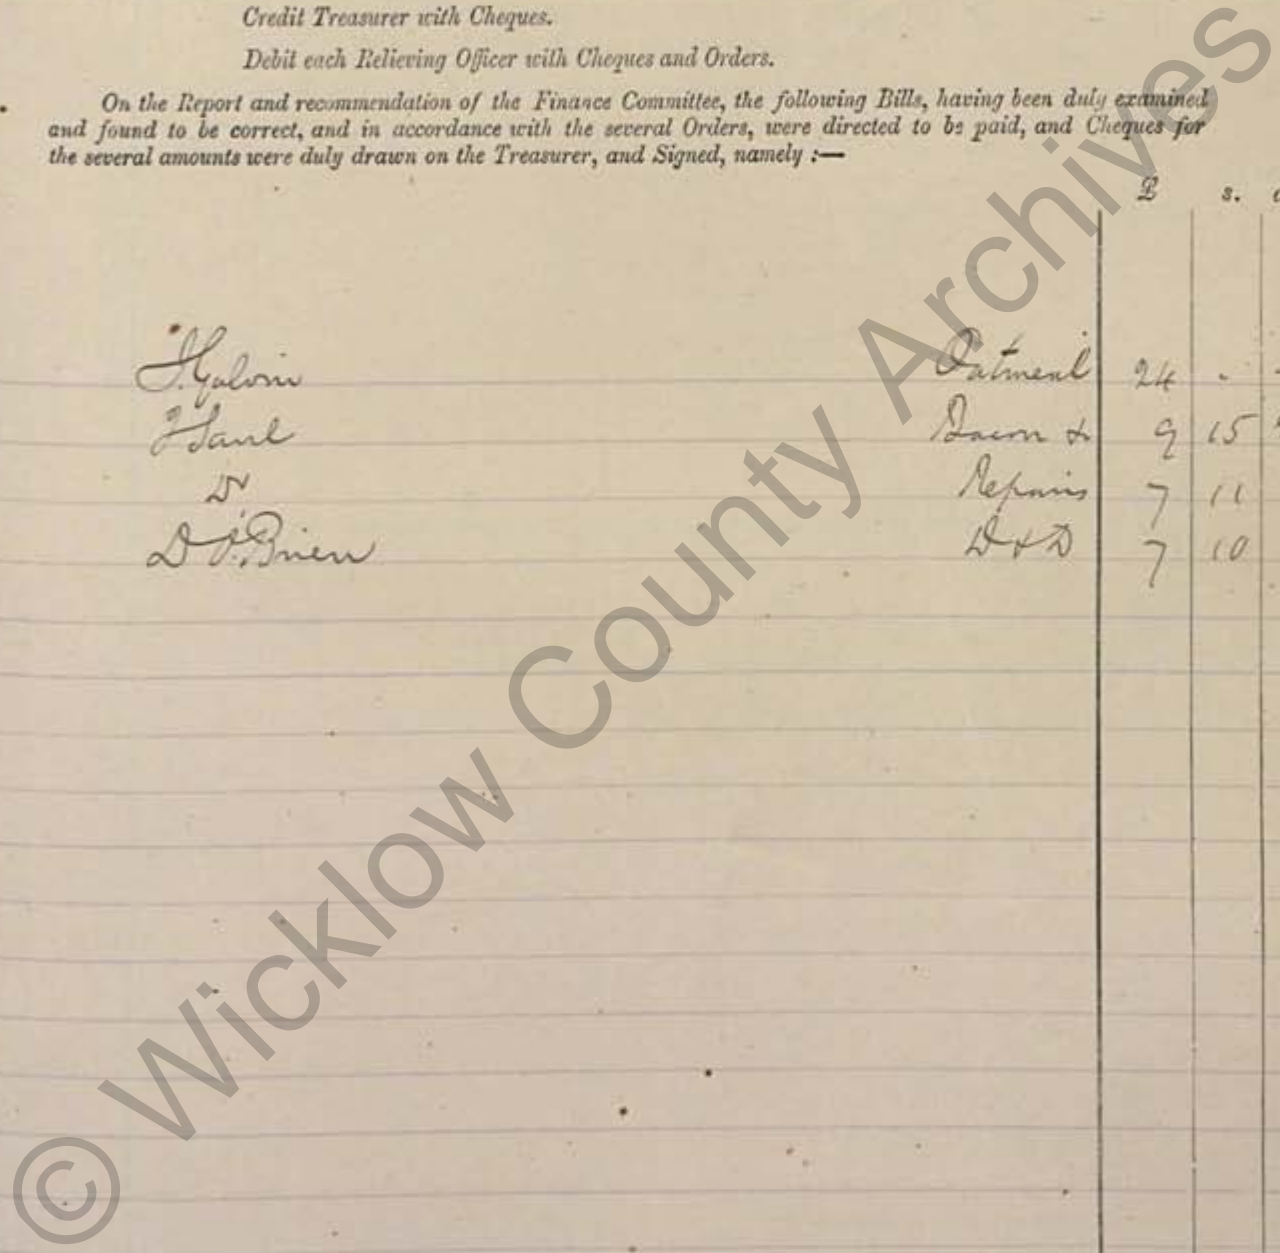 Credit Treasurer with Cheques.
Debit each Relieving Officer with Cheques and Orders.
On the Report and recommendation of the Finance Committee, the following Bills, having been duly examined
and found to be correct, and in accordance with the several Orders, were directed to be paid, and Cheques for
the several amounts were duly drawn on the Treasurer, and Signed, namely :—
£ s.
J. Galvin Oatmeal 24 . -
Bacon & 9 15
Do Repairs 7 11
D O'Brien D & D 7 10
© Wicklow County Archives